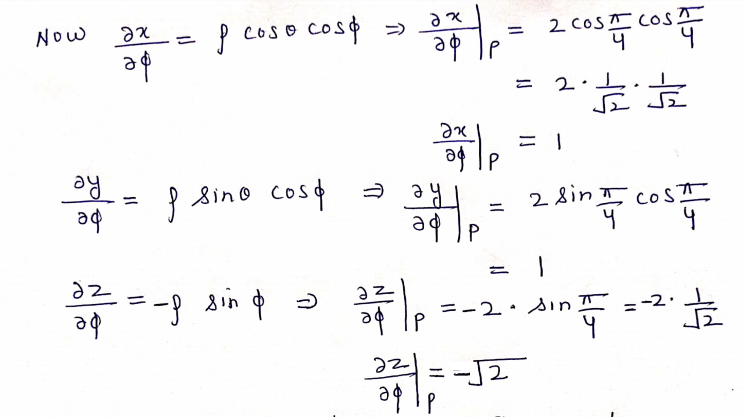 Now ∂x/∂ϕ = ρ cosθ cosϕ ⇒ ∂x/∂ϕ|p = 2 cos π/4 cos π/4
= 2 · 1/√2 · 1/√2
∂x/∂ϕ|p = 1
∂y/∂ϕ = ρ sinθ cosϕ ⇒ ∂y/∂ϕ|p = 2 sin π/4 cos π/4
= 1
∂z/∂ϕ = -ρ sin ϕ ⇒ ∂z/∂ϕ|p = -2 · sin π/4 = -2 · 1/√2
∂z/∂ϕ|p = -√2